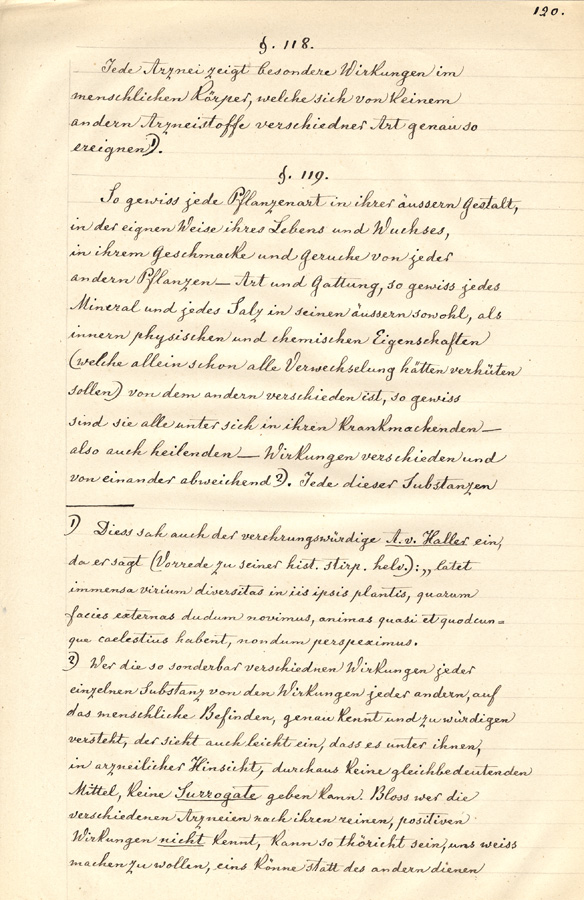 120.
§. 118.
Jede Arznei zeigt besondere Wirkungen im
menschlichen Körper, welche sich von keinem
andern Arzneistoffe verschiedner Art genau so
ereignen 1).
§. 119.
So gewiss jede Pflanzenart in ihrer äussern Gestalt,
in der eignen Weise ihres Lebens und Wuchses,
in ihrem Geschmacke und Geruche von jeder
andern Pflanzen— Art und Gattung, so gewiss jedes
Mineral und jedes Salz in seinen äussern sowohl, als
innern physischen und chemischen Eigenschaften
(welche allein schon alle Verwechselung hätten verhüten
sollen) von dem andern verschieden ist, so gewiss
sind sie alle unter sich in ihren krankmachenden—
also auch heilenden— Wirkungen verschieden und
von einander abweichend 2). Jede dieser Substanzen
1) Diess sah auch der verehrungswürdige A. v. Haller ein,
da er sagt (Vorrede zu seiner hist. stirp. helv.): „latet
immensa virium diversitas in iis ipsis plantis, quarum
facies externas dudum novimus, animas quasi et quodcun=
que caelestius habent, nondum perspeximus.
2) Wer die so sonderbar verschiednen Wirkungen jeder
einzelnen Substanz von den Wirkungen jeder andern, auf
das menschliche Befinden, genau kennt und zu würdigen
versteht, der sieht auch leicht ein, dass es unter ihnen,
in arzneilicher Hinsicht, durchaus keine gleichbedeutenden
Mittel, keine Surrogate geben kann. Bloss wer die
verschiedenen Arzneien nach ihren reinen, positiven
Wirkungen nicht kennt, kann so thöricht sein, uns weiss
machen zu wollen, eins könne statt des andern dienen